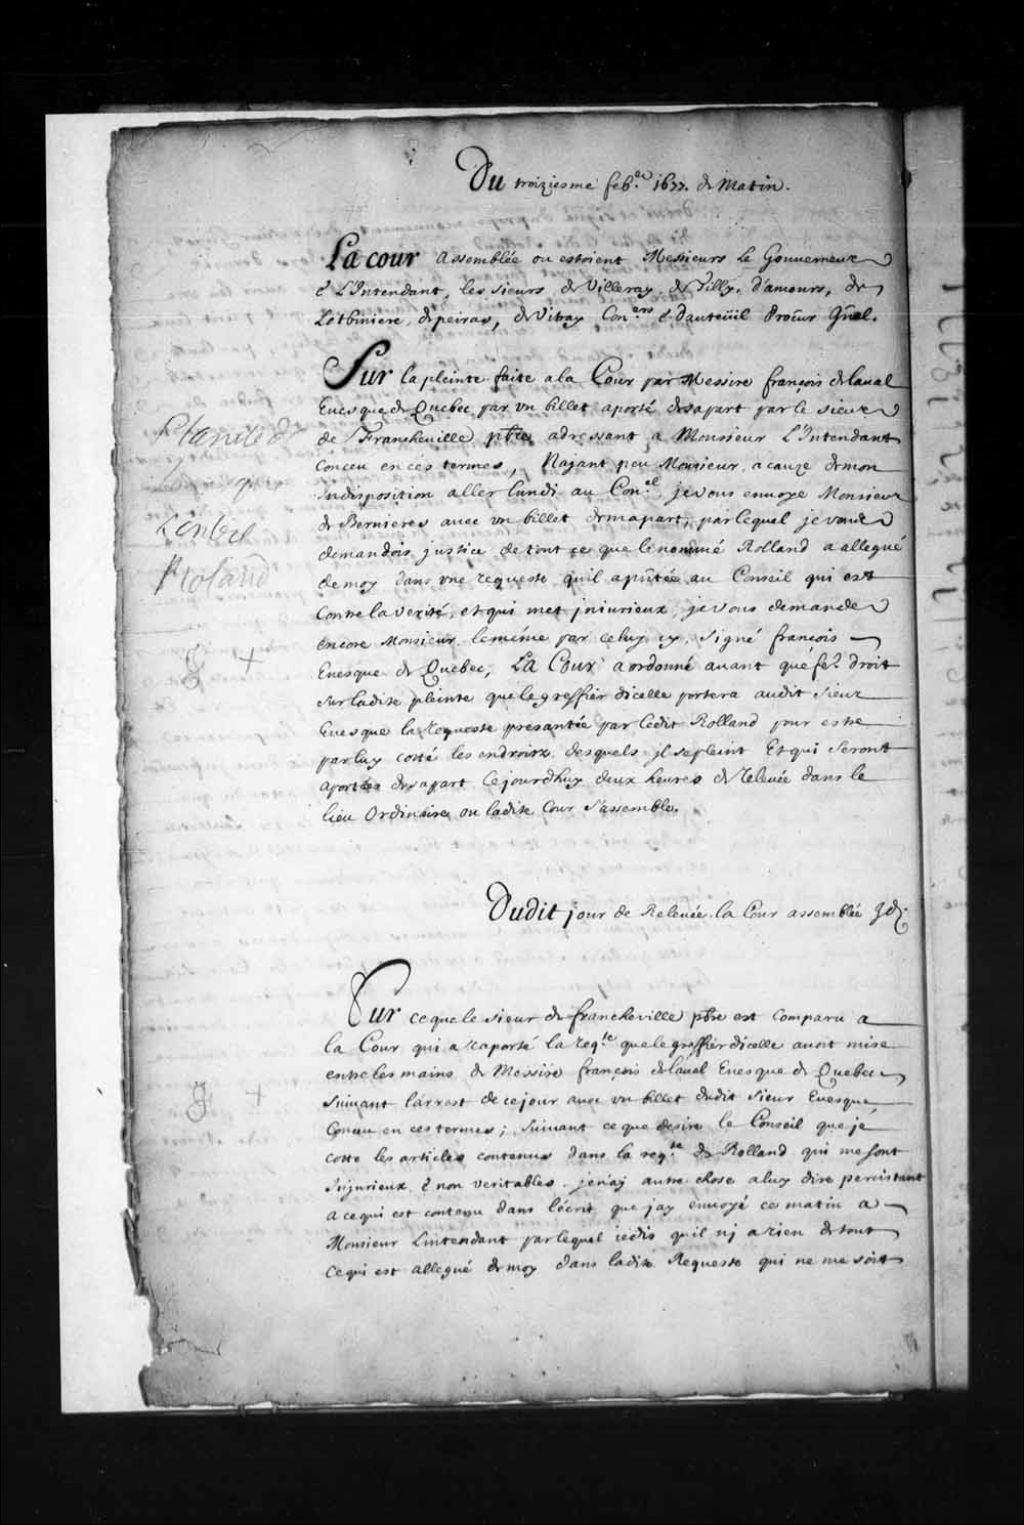 Du troiziesme feb.er 1677. de Matin.
La cour assemblée ou estoient Messieurs le Gouuerneur
& L'Intendant, les sieurs de Villeray, de Tilly, d'amours, de
Lotbiniere, depeiras, de Vitray Con.ers & dauteüil Procur Gnal.
Sur la pleinte faite a la Cour par Messire françois delaual
Euesque de Quebec, par vn billet aporté desapart par le sieur
de Francheuille ptre adressant a Monsieur L'Intendant
conceu en ces termes, Najant peu Monsieur, a cauze demon
Indisposition aller lundi au Con.el, je vous enuoye Monsieur
de Bernieres auec vn billet demapart, par lequel je vous
demandois justice de tout ce que le nommé Rolland a allegué
de moy dans vne requeste qu'il a pñtée au Conseil qui est
contre la verité, et qui m'est jniurieux, je vous demande
encore Monsieur le méme par celuy cy, Signé françois
Euesque de Quebec, La Cour a ordonné auant que fe.e droit
sur ladite pleinte que le greffier dicelle portera audit sieur
Euesque la requeste presantée par ledit Rolland pour estre
par luy cotté les endroits desquels jl se pleint Et qui seront
aportés desapart cejourdhuy deux heures de releuée dans le
lieu Ordinaire ou ladite Cour s'assemble.
Plainte de
L'euesque
Roland
+
Dudit jour de Releuée la Cour assemblée
Sur ce que le sieur de francheville ptre est comparu a
la Cour qui a raporté la req.te que le greffier dicelle auoit mise
entre les mains de Messire françois delaual Euesque de Quebec
suiuant l'arrest de ce jour auec vn billet dudit sieur Euesque,
Conceu en ces termes; suiuant ce que desire le Conseil que je
cotte les articles contenus dans la req.te de Rolland qui me sont
Injurieux & non veritables. je n'aj autre chose a luy dire persistant
a ce qui est contenu dans l'écrit que jay enuoyé ce matin a
Monsieur Lintendant par lequel ie dis qu'il nj a rien de tout
ce qui est allegué de moy dans ladite Requeste qui ne me soit
+